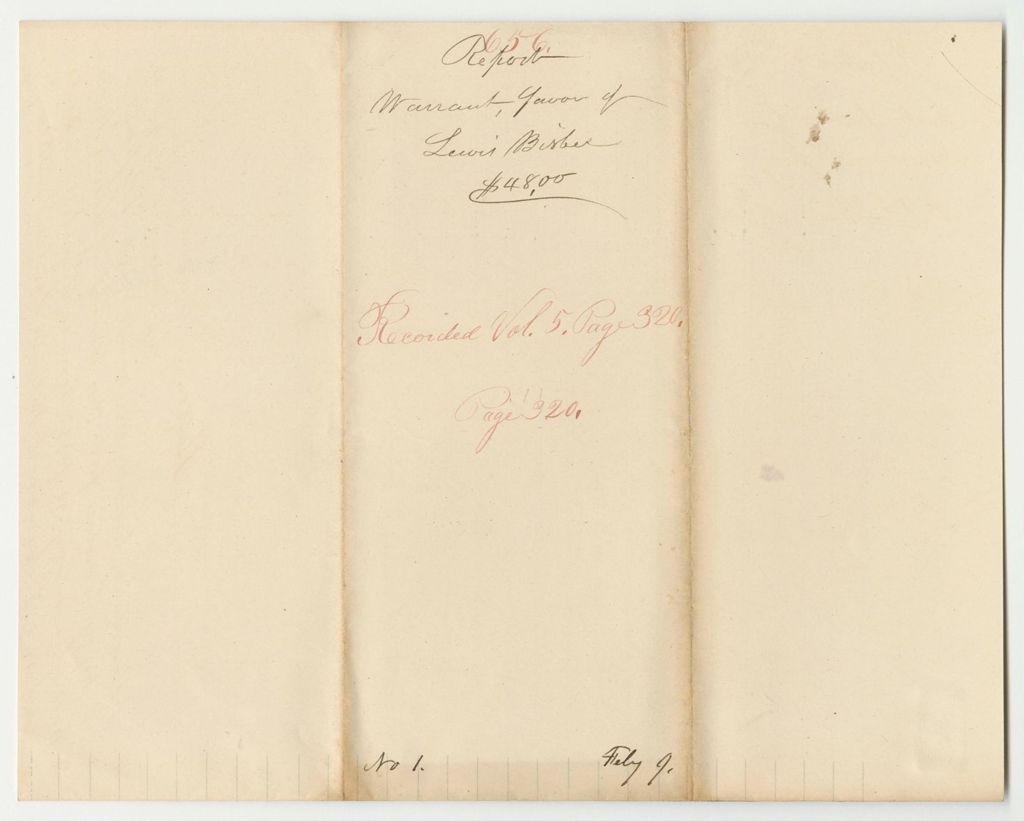 656.
Report
Warrant, favor of
Lewis Bisbee
$48,00
Recorded Vol. 5. Page 320.
Page 320.
No 1. Feby 9.